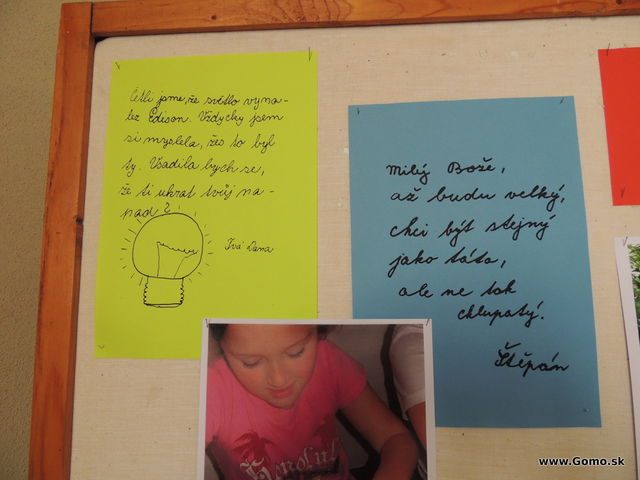 Četli jsme, že světlo vyna-
lez Edison. Vždycky jsem
si myslela, žes to byl
ty. Vsadila bych se,
že ti ukrat tvůj ná-
pad?
Tvá Dana
Milý Bože,
až budu velký,
chci být stejný
jako táta,
ale ne tak
chlupatý.
Štěpán
Honolul
www.Gomo.sk